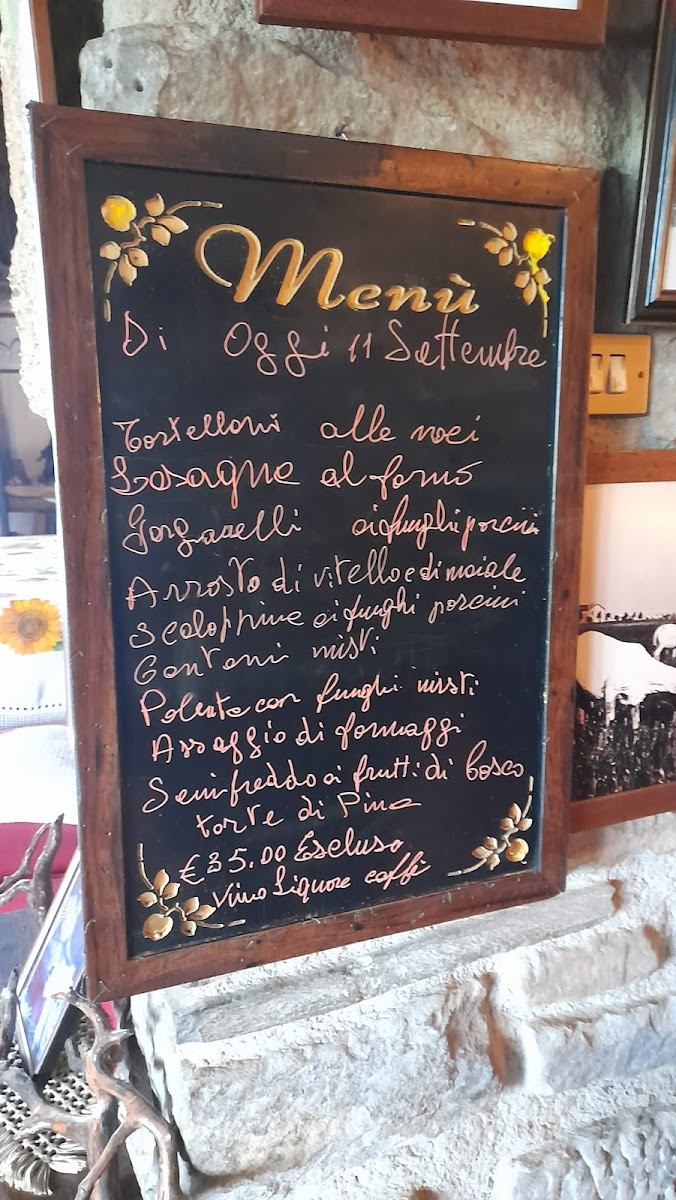 Menù
Di Oggi 11 Settembre
Tortelloni alle noci
Lasagne al forno
Garganelli ai funghi porcini
Arrosto di vitello e di maiale
Scaloppine ai funghi porcini
Contorni misti
Polenta con funghi misti
Assaggio di formaggi
Semifreddo ai frutti di bosco
torte di Pina
€35.00 Escluso
Vino Liquore caffè